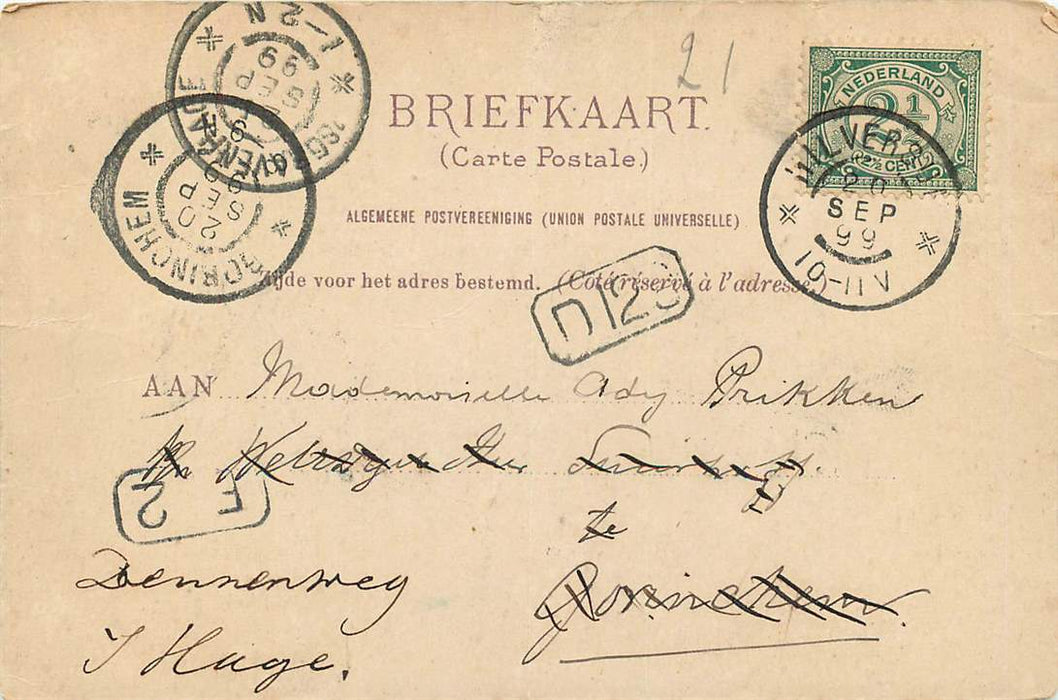 21
BRIEFKAART.
(Carte Postale.)
ALGEMEENE POSTVEREENIGING (UNION POSTALE UNIVERSELLE)
Zijde voor het adres bestemd. (Coté réservé à l'adresse.)
NEDERLAND
2½
(2½ CENT)
HILVERSUM
20
SEP
99
10-11V
1-2N
SEP
99
GORINCHEM
20
SEP
D123
AAN Mademoiselle Ady Prikken
te
Gorinchem.
F
2
Dennenweg
's Hage.